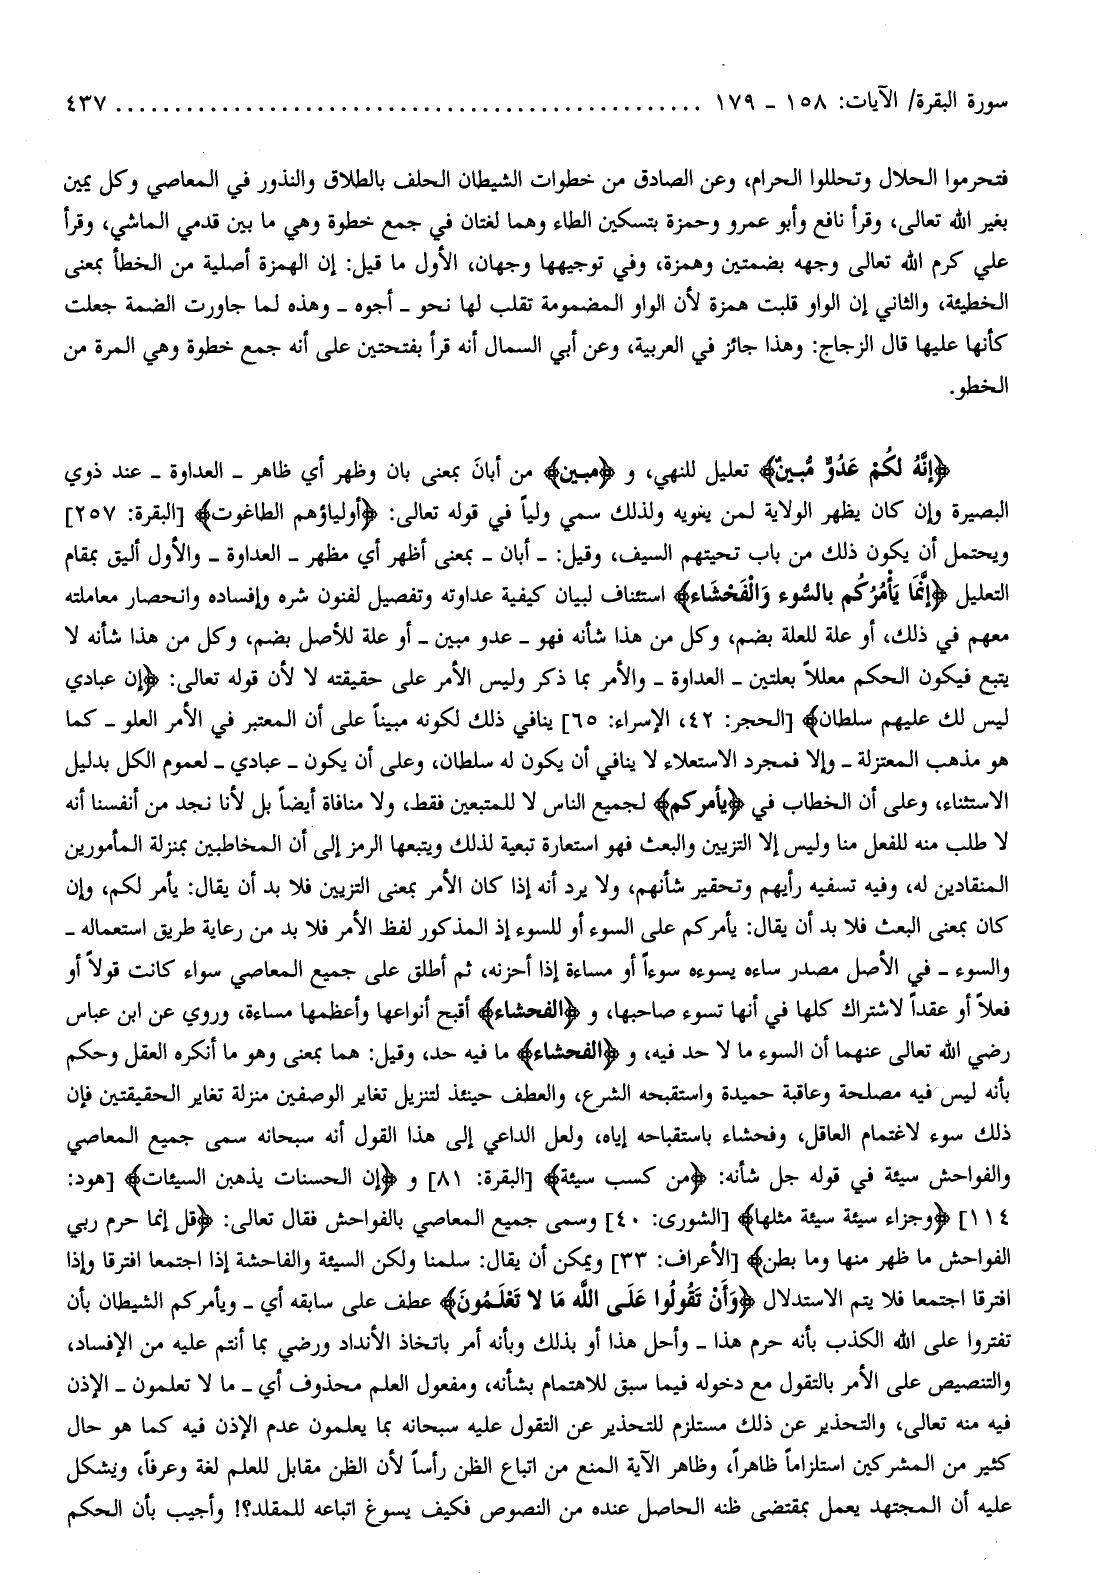 سورة البقرة/ الآيات: ١٥٨ ـ ١٧٩ .................................................. ٤٣٧
فتحرموا الحلال وتحللوا الحرام، وعن الصادق من خطوات الشيطان الحلف بالطلاق والنذور في المعاصي وكل يمين
بغير الله تعالى، وقرأ نافع وأبو عمرو وحمزة بتسكين الطاء وهما لغتان في جمع خطوة وهي ما بين قدمي الماشي، وقرأ
علي كرم الله تعالى وجهه بضمتين وهمزة، وفي توجيهها وجهان، الأول ما قيل: إن الهمزة أصلية من الخطأ بمعنى
الخطيئة، والثاني إن الواو قلبت همزة لأن الواو المضمومة تقلب لها نحو ـ أجوه ـ وهذه لما جاورت الضمة جعلت
كأنها عليها قال الزجاج: وهذا جائز في العربية، وعن أبي السمال أنه قرأ بفتحتين على أنه جمع خطوة وهي المرة من
الخطو.
﴿إِنَّهُ لَكُمْ عَدُوٌّ مُّبِينٌ﴾ تعليل للنهي، و ﴿مبين﴾ من أبانَ بمعنى بان وظهر أي ظاهر ـ العداوة ـ عند ذوي
البصيرة وإن كان يظهر الولاية لمن يغويه ولذلك سمي ولياً في قوله تعالى: ﴿أولياؤهم الطاغوت﴾ [البقرة: ٢٥٧]
ويحتمل أن يكون ذلك من باب تحيتهم السيف، وقيل: ـ أبان ـ بمعنى أظهر أي مظهر ـ العداوة ـ والأول أليق بمقام
التعليل ﴿إِنَّمَا يَأْمُرُكُم بالسُّوء وَالْفَحْشَاء﴾ استئناف لبيان كيفية عداوته وتفصيل لفنون شره وإفساده وانحصار معاملته
معهم في ذلك، أو علة للعلة بضم، وكل من هذا شأنه فهو ـ عدو مبين ـ أو علة للأصل بضم، وكل من هذا شأنه لا
يتبع فيكون الحكم معللاً بعلتين ـ العداوة ـ والأمر بما ذكر وليس الأمر على حقيقته لا لأن قوله تعالى: ﴿إن عبادي
ليس لك عليهم سلطان﴾ [الحجر: ٤٢، الإسراء: ٦٥] ينافي ذلك لكونه مبيناً على أن المعتبر في الأمر العلو ـ كما
هو مذهب المعتزلة ـ وإلا فمجرد الاستعلاء لا ينافي أن يكون له سلطان، وعلى أن يكون ـ عبادي ـ لعموم الكل بدليل
الاستثناء، وعلى أن الخطاب في ﴿يأمركم﴾ لجميع الناس لا للمتبعين فقط، ولا منافاة أيضاً بل لأنا نجد من أنفسنا أنه
لا طلب منه للفعل منا وليس إلا التزيين والبعث فهو استعارة تبعية لذلك ويتبعها الرمز إلى أن المخاطبين بمنزلة المأمورين
المنقادين له، وفيه تسفيه رأيهم وتحقير شأنهم، ولا يرد أنه إذا كان الأمر بمعنى التزيين فلا بد أن يقال: يأمر لكم، وإن
كان بمعنى البعث فلا بد أن يقال: يأمركم على السوء أو للسوء إذ المذكور لفظ الأمر فلا بد من رعاية طريق استعماله ـ
والسوء ـ في الأصل مصدر ساءه يسوءه سوءاً أو مساءة إذا أحزنه، ثم أطلق على جميع المعاصي سواء كانت قولاً أو
فعلاً أو عقداً لاشتراك كلها في أنها تسوء صاحبها، و ﴿الفحشاء﴾ أقبح أنواعها وأعظمها مساءة، وروي عن ابن عباس
رضي الله تعالى عنهما أن السوء ما لا حد فيه، و ﴿الفحشاء﴾ ما فيه حد، وقيل: هما بمعنى وهو ما أنكره العقل وحكم
بأنه ليس فيه مصلحة وعاقبة حميدة واستقبحه الشرع، والعطف حينئذ لتنزيل تغاير الوصفين منزلة تغاير الحقيقتين فإن
ذلك سوء لاغتمام العاقل، وفحشاء باستقباحه إياه، ولعل الداعي إلى هذا القول أنه سبحانه سمى جميع المعاصي
والفواحش سيئة في قوله جل شأنه: ﴿من كسب سيئة﴾ [البقرة: ٨١] و ﴿إن الحسنات يذهبن السيئات﴾ [هود:
١١٤] ﴿وجزاء سيئة سيئة مثلها﴾ [الشورى: ٤٠] وسمى جميع المعاصي بالفواحش فقال تعالى: ﴿قل إنما حرم ربي
الفواحش ما ظهر منها وما بطن﴾ [الأعراف: ٣٣] ويمكن أن يقال: سلمنا ولكن السيئة والفاحشة إذا اجتمعا افترقا وإذا
افترقا اجتمعا فلا يتم الاستدلال ﴿وَأَنْ تَقُولُوا عَلَى اللَّه مَا لا تَعْلَمُونَ﴾ عطف على سابقه أي ـ ويأمركم الشيطان بأن
تفتروا على الله الكذب بأنه حرم هذا ـ وأحل هذا أو بذلك وبأنه أمر باتخاذ الأنداد ورضي بما أنتم عليه من الإفساد،
والتنصيص على الأمر بالتقول مع دخوله فيما سبق للاهتمام بشأنه، ومفعول العلم محذوف أي ـ ما لا تعلمون ـ الإذن
فيه منه تعالى، والتحذير عن ذلك مستلزم للتحذير عن التقول عليه سبحانه بما يعلمون عدم الإذن فيه كما هو حال
كثير من المشركين استلزاماً ظاهراً، وظاهر الآية المنع من اتباع الظن رأساً لأن الظن مقابل للعلم لغة وعرفاً، ويشكل
عليه أن المجتهد يعمل بمقتضى ظنه الحاصل عنده من النصوص فكيف يسوغ اتباعه للمقلد؟! وأجيب بأن الحكم